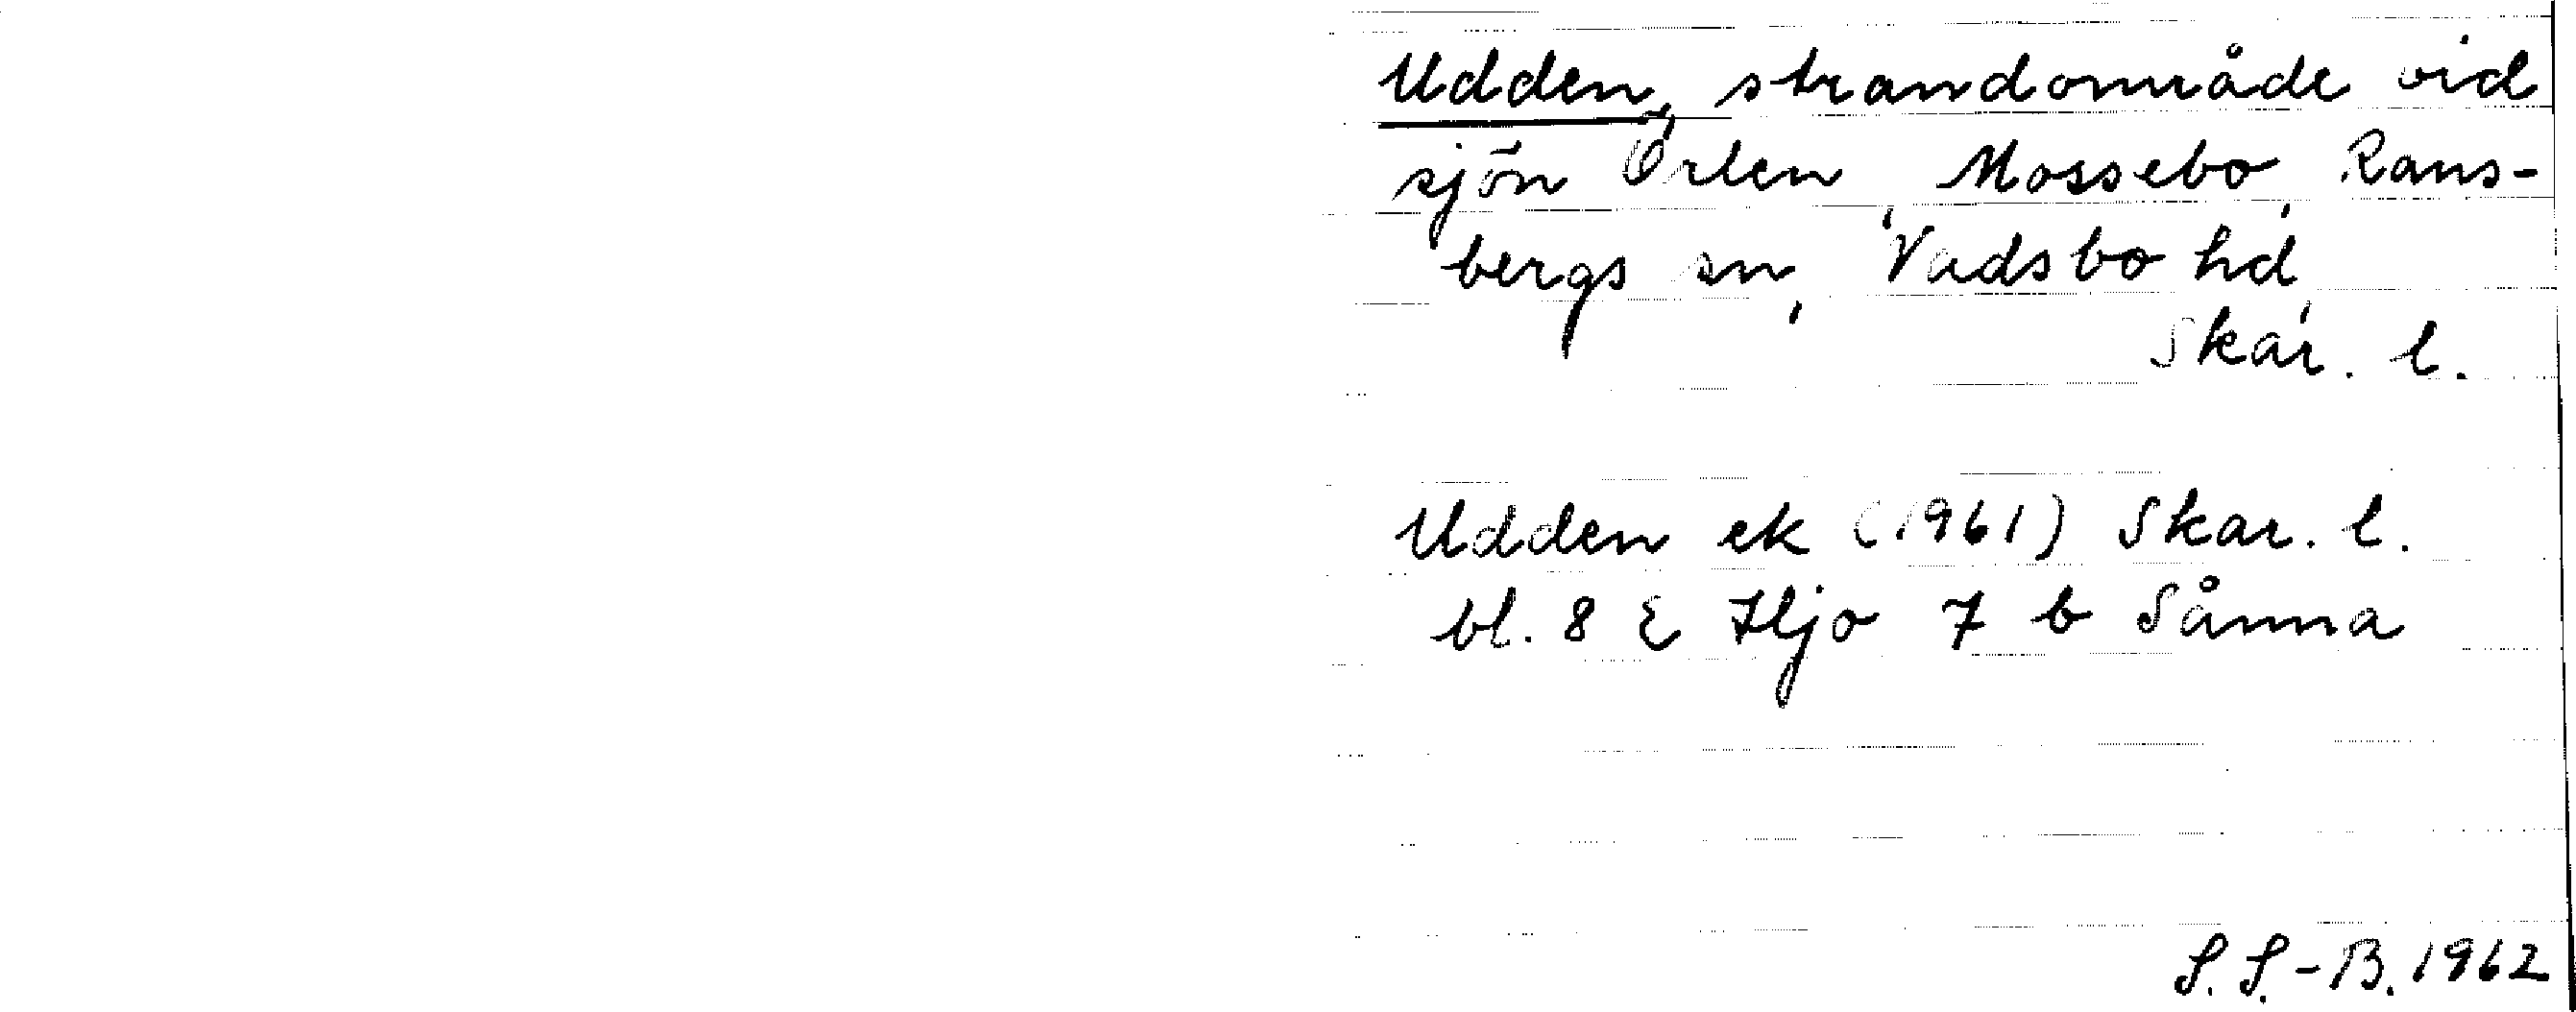 Udden, strandområde vid
sjön Örlen, Mossebo, Rans-
bergs sn, Vadsbo hd,
Skar. l.
Udden ek (1961) Skar. l.
bl. 8 E Hjo 7 b Sånna
S. S.-B. 1962